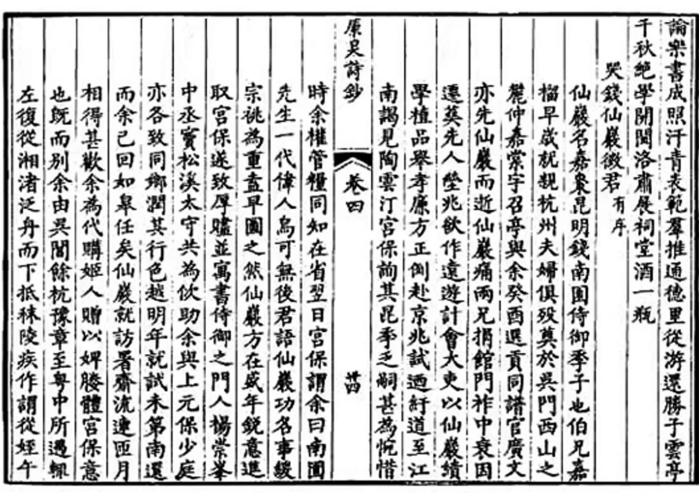 論樂書成照汗青表範羣推通德里從游還勝子雲亭
千秋絶學開閩洛肅展祠堂酒一瓶
哭錢仙巖徵君有序
仙巖名嘉棗昆明錢南園侍御季子也伯兄嘉
榴早歲就親杭州夫婦俱歿葬於吳門西山之
麓仲嘉棠字召亭與余癸酉選貢同譜官廣文
亦先仙巖而逝仙巖痛兩兄捐館門祚中衰因
遷葵先人塋兆欲作遠遊計會大吏以仙巖績
學植品舉孝廉方正例赴京兆試迺紆道至江
南謁見陶雲汀宮保詢其昆季乏嗣甚為惋惜
原吳詩鈔
卷四
卅四
時余權管糧同知在省翌日宮保謂余曰南園
先生一代偉人烏可無後君語仙巖功名事緩
宗祧為重盍早圖之然仙巖方在盛年銳意進
取宮保遂致厚贐並寓書侍御之門人楊崇峯
中丞竇松溪太守共為佽助余與上元保少庭
亦各致同鄉潤其行色越明年就試未第南還
而余已回如皋任矣仙巖就訪署齋流連匝月
相得甚歡余為代購姬人贈以婢媵體宮保意
也旣而別余由吳閶餘杭豫章至粵中所遇輒
左復從湘渚泛舟而下抵秣陵疾作謂從姪午